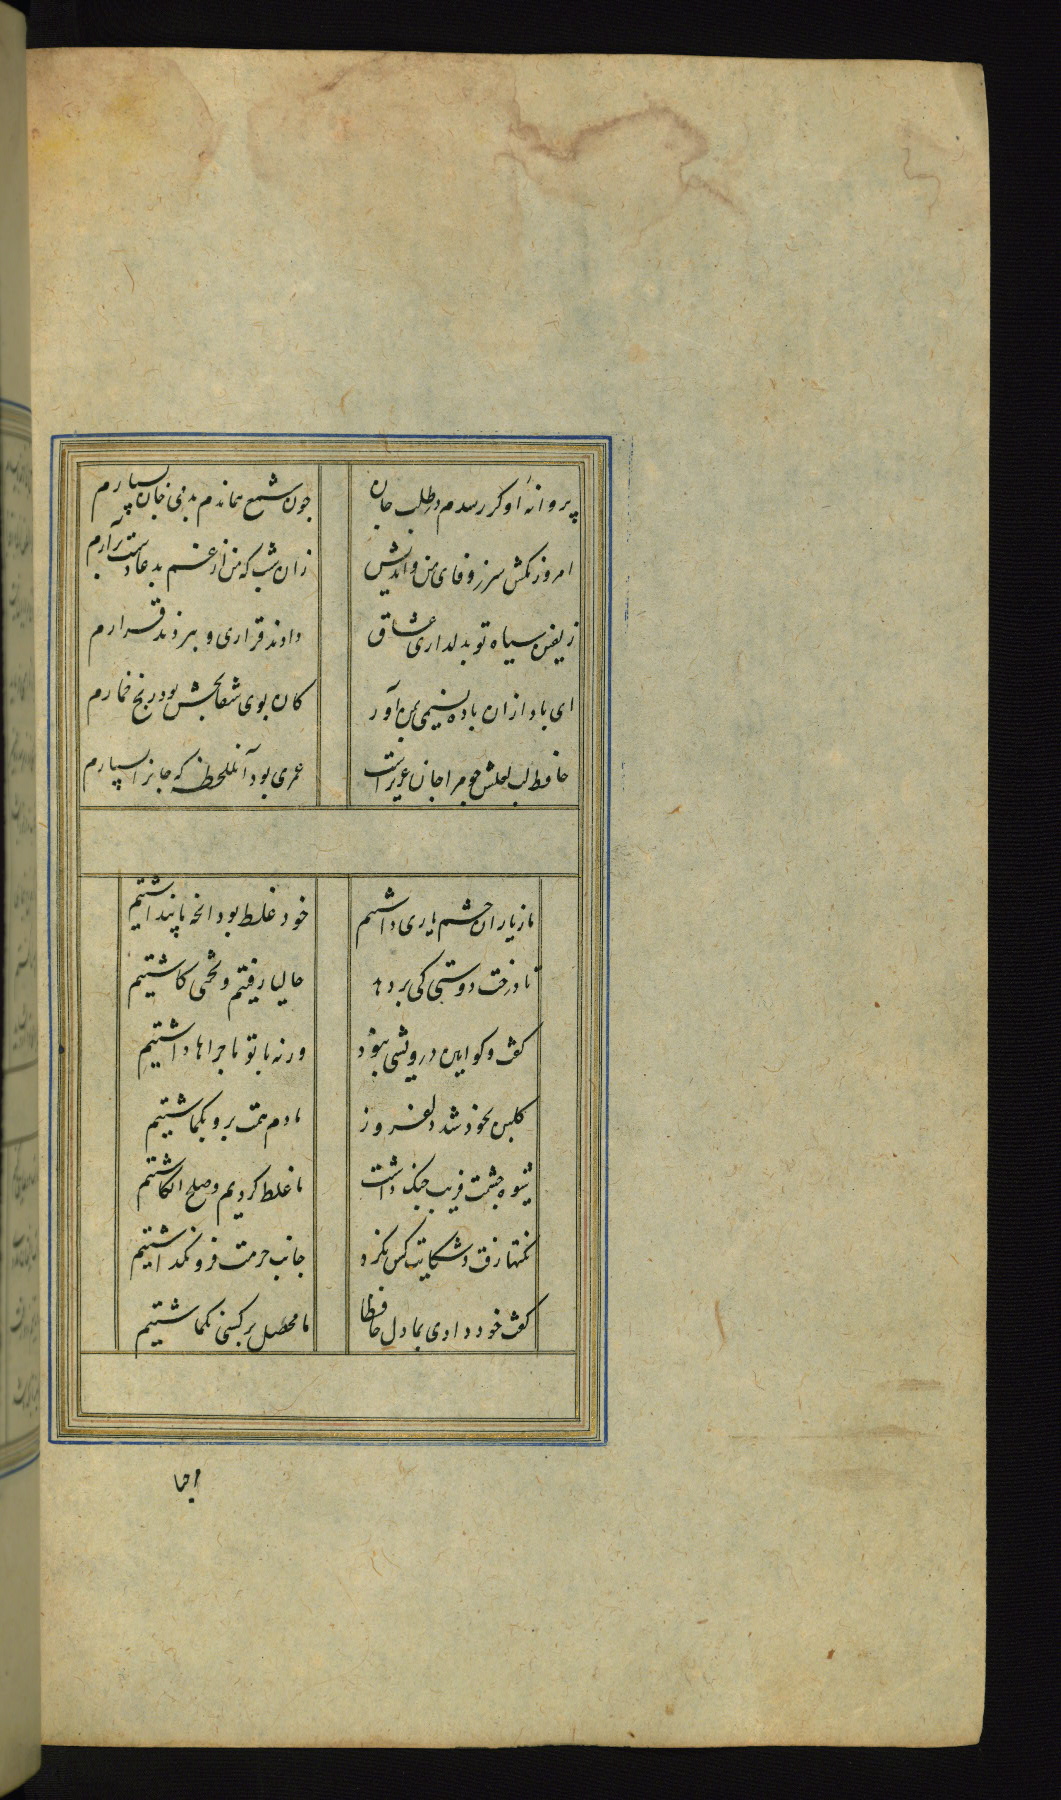 پروانهٔ او گر رسدم در طلب جان
چون شمع هماندم بدمی جان بسپارم
امروز مکش سر ز وفای من و اندیش
زان شب که من از غم بدعا دست برآرم
زلفین سیاه تو بدلداری عشاق
دادند قراری و ببردند قرارم
ای باد از ان باده نسیمی بمن آور
کان بوی شفابخش بود رنج خمارم
حافظ لب لعلش چو مرا جان عزیزست
عمری بود آنلحظه که جانرا بسپارم
ما ز یاران چشم یاری داشتیم
خود غلط بود انچه ما پنداشتیم
تا درخت دوستی کی بر دهد
حالیا رفتیم و تخمی کاشتیم
گفت و کو ایین درویشی نبود
ورنه با تو ماجراها داشتیم
کلبن شد دلفروز
ما دم همت برو بکماشتیم
شیوه چشمت فریب جنک داشت
ما غلط کردیم و صلح انکاشتیم
نکتها رفت و شکایت کس نکرد
جانب حرمت فرو نکذاشتیم
کفت خود دادی بما دل حافظا
ما محصل بر کسی نکماشتیم